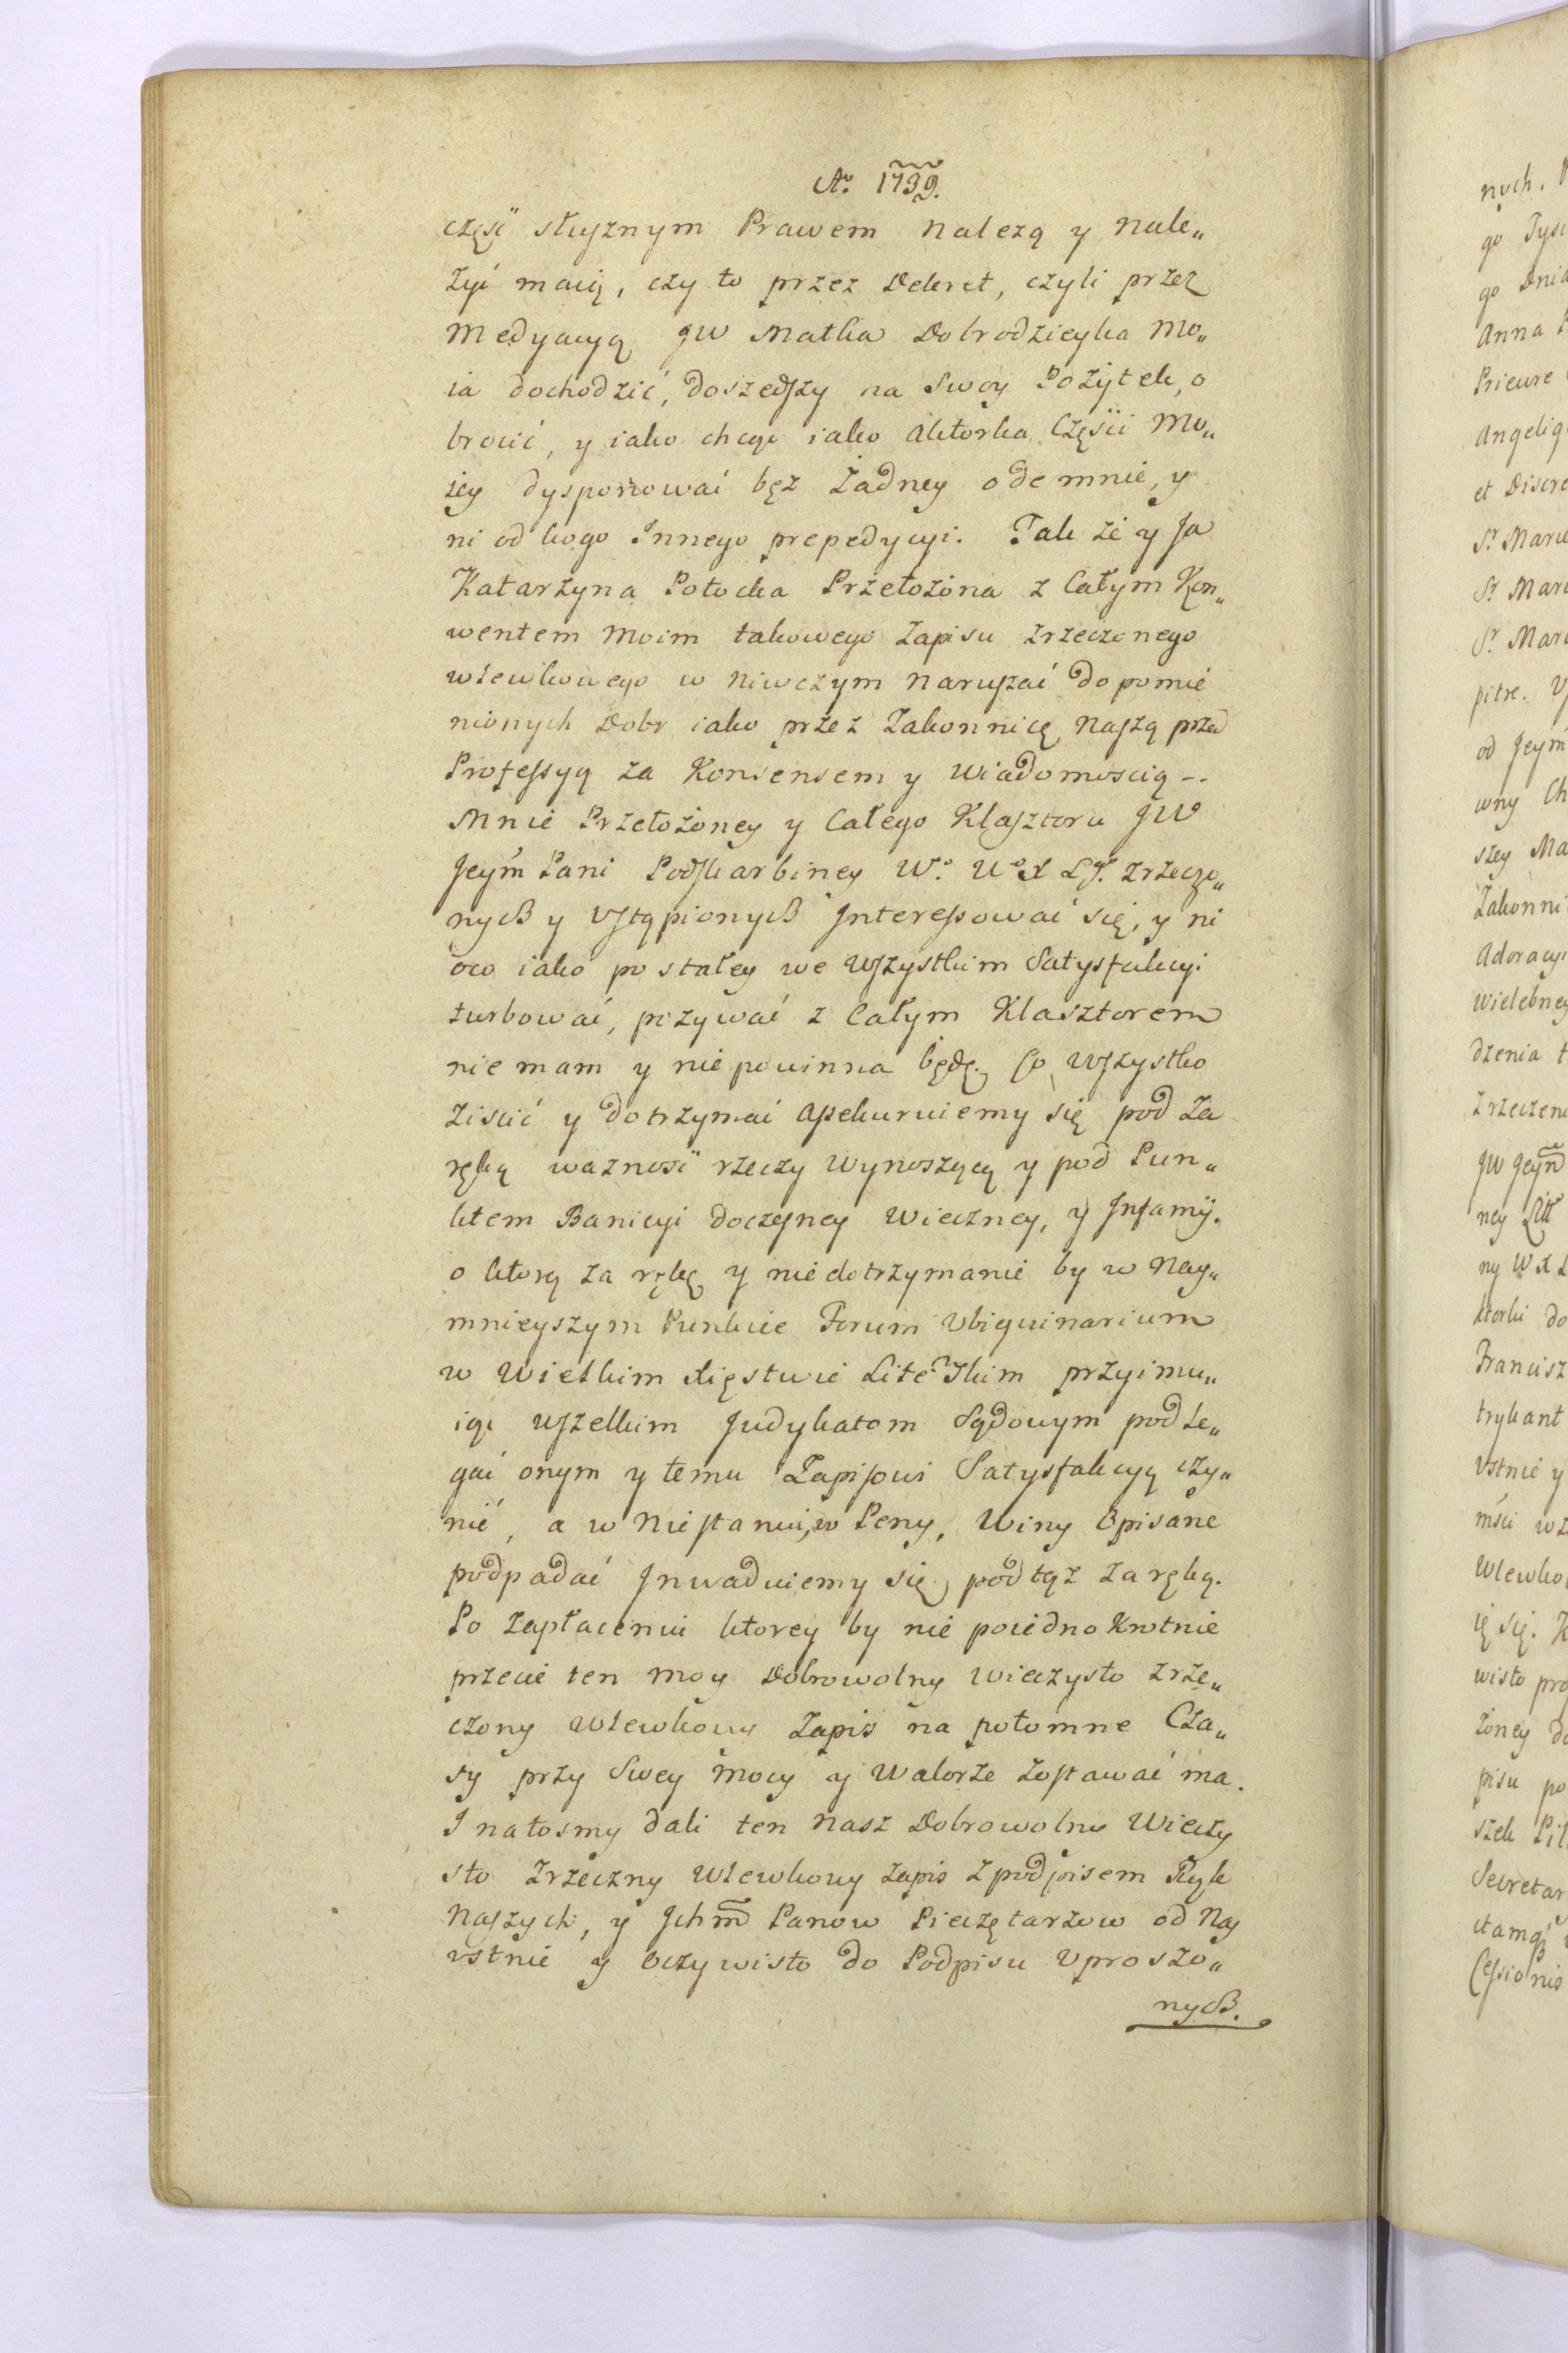 Aº. 1739.
częsć słusznym Prawem nalezą y nale„
żyć maią, czy to przez Dekret, czyli przez
Medyacyą JW Matka Dobrodzieyka Mo„
ia dochodzić, doszedszy na swoy Pożytek, o
brocić, y iako chcąc iako Aktorka Częsci Mo„
iey dysponować bez Żadney odemnie, y
ni od kogo Innego prepedycyi. Tak że y Ja
Katarzyna Potocka Przełożona z Całym Kon„
wentem Moim takowego Zapisu zrzeczonego
wlewkowego w niwczym Naruszać do pomie
nionych Dobr iako przez Zakonnicę naszą przed
Professyą za Konsensem y Wiadomoscią --
Mnie Przełożoney y Całego Klasztoru JW
Jeym̃ Pani Podskarbiney Wº. Uº X Lgº. zrzeczo„
nych y Ustąpionych Interessować się, y ni
oco iako po stałey we wszystkim Satysfakcyi
turbować, pozywać z Całym Klasztorem
nie mam y nie powinna będę. Co wszystko
ziscić y dotrzymać assekuruiemy się pod Za
ręką waznosć rzeczy wynoszącą y pod Pun„
ktem Banicyi doczesney wieczney, y Infamÿ.
o ktorą za rękę y niedotrzymanie by w Nay„
mnieyszym Punkcie Forum Ubiquinarium
w Wielkim Xięstwie Liteskim przyimu„
iąc wszelkim Judykatom Sądowym podle„
gać onym y temu Zapisowi Satysfakcyą czy„
nić, a w Niestaniu, w Peny, Winy Opisane
podpadać Inwaduiemy się, pod tąż zaręką.
Po Zapłaceniu ktorey by nie poiedno Krotnie
przecie ten moy Dobrowolny wieczysto zrze„
czony wlewkowy Zapis na potomne Cza„
sy przy Swey Mocy y Walorze zostawać ma.
I natosmy dali ten nasz Dobrowolny Wieczy
sto zrzeczny wlewkowy zapis z podpisem Rąk
Naszych, y Jchm̃ Panow Pieczętarzow od Nas
ustnie y oczywisto do Podpisu Uproszo„
nych.
nych.
go Tysi
go Dnia
Anna
Prieure
Angeliq
et Discre
Sr. Marie
Sr. Mari
Sr. Mari
pitre.
od Jeym̃
wny Ch
szey Ma
Zakonni
Adoracyi
Wielebney
dzenia t
zrzeczen
JW Jeym̃
ney Litt
ny W X L
ktorki do
Francisz
trykant
Ustnie y
mści wz
Wlewko
ię się. K
wisto pro
żoney do
pisu po
szek Pil
Secretar
ctamq̃
Cessionis